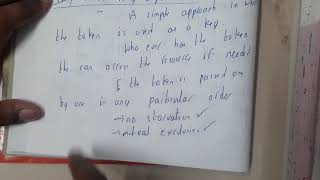 A simple approach in
the token is used as a key.
Who ever has the token
can access the resource if needed
& the token is passed on
by one in any particular order
→ no starvation ✓
→ mutual exclusion ✓